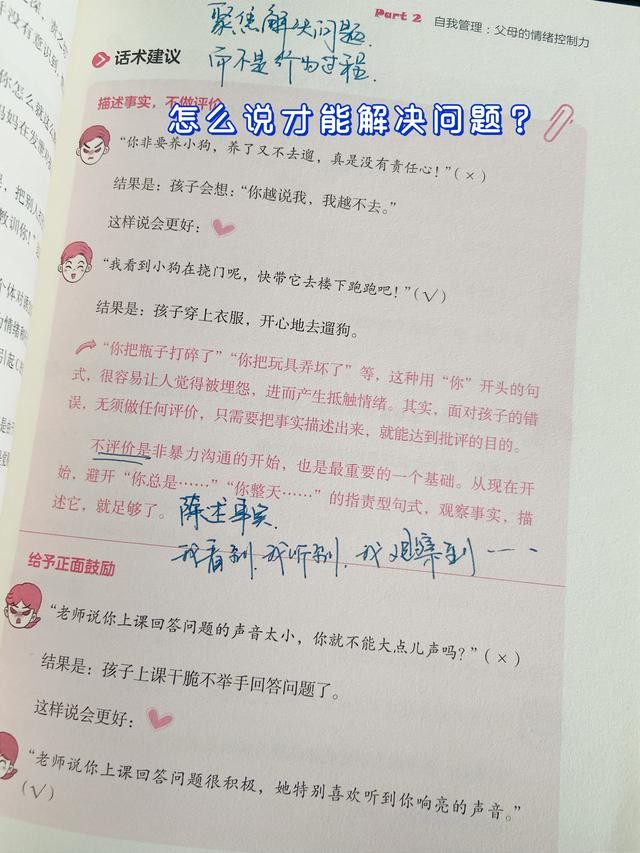 聚焦解决问题.
Part 2 自我管理：父母的情绪控制力
而不是行为过程.
话术建议
描述事实，不做评价
怎么说才能解决问题？
“你非要养小狗，养了又不去遛，真是没有责任心！”（×）
结果是：孩子会想：“你越说我，我越不去。”
这样说会更好：
“我看到小狗在挠门呢，快带它去楼下跑跑吧！”（√）
结果是：孩子穿上衣服，开心地去遛狗。
“你把瓶子打碎了”“你把玩具弄坏了”等，这种用“你”开头的句
式，很容易让人觉得被埋怨，进而产生抵触情绪。其实，面对孩子的错
误，无须做任何评价，只需要把事实描述出来，就能达到批评的目的。
不评价是非暴力沟通的开始，也是最重要的一个基础。从现在开
始，避开“你总是……”“你整天……”的指责型句式，观察事实，描
述它，就足够了。
陈述事实.
我看到.我听到.我观察到----
给予正面鼓励
“老师说你上课回答问题的声音太小，你就不能大点儿声吗？”（×）
结果是：孩子上课干脆不举手回答问题了。
这样说会更好：
“老师说你上课回答问题很积极，她特别喜欢听到你响亮的声音。”
（√）